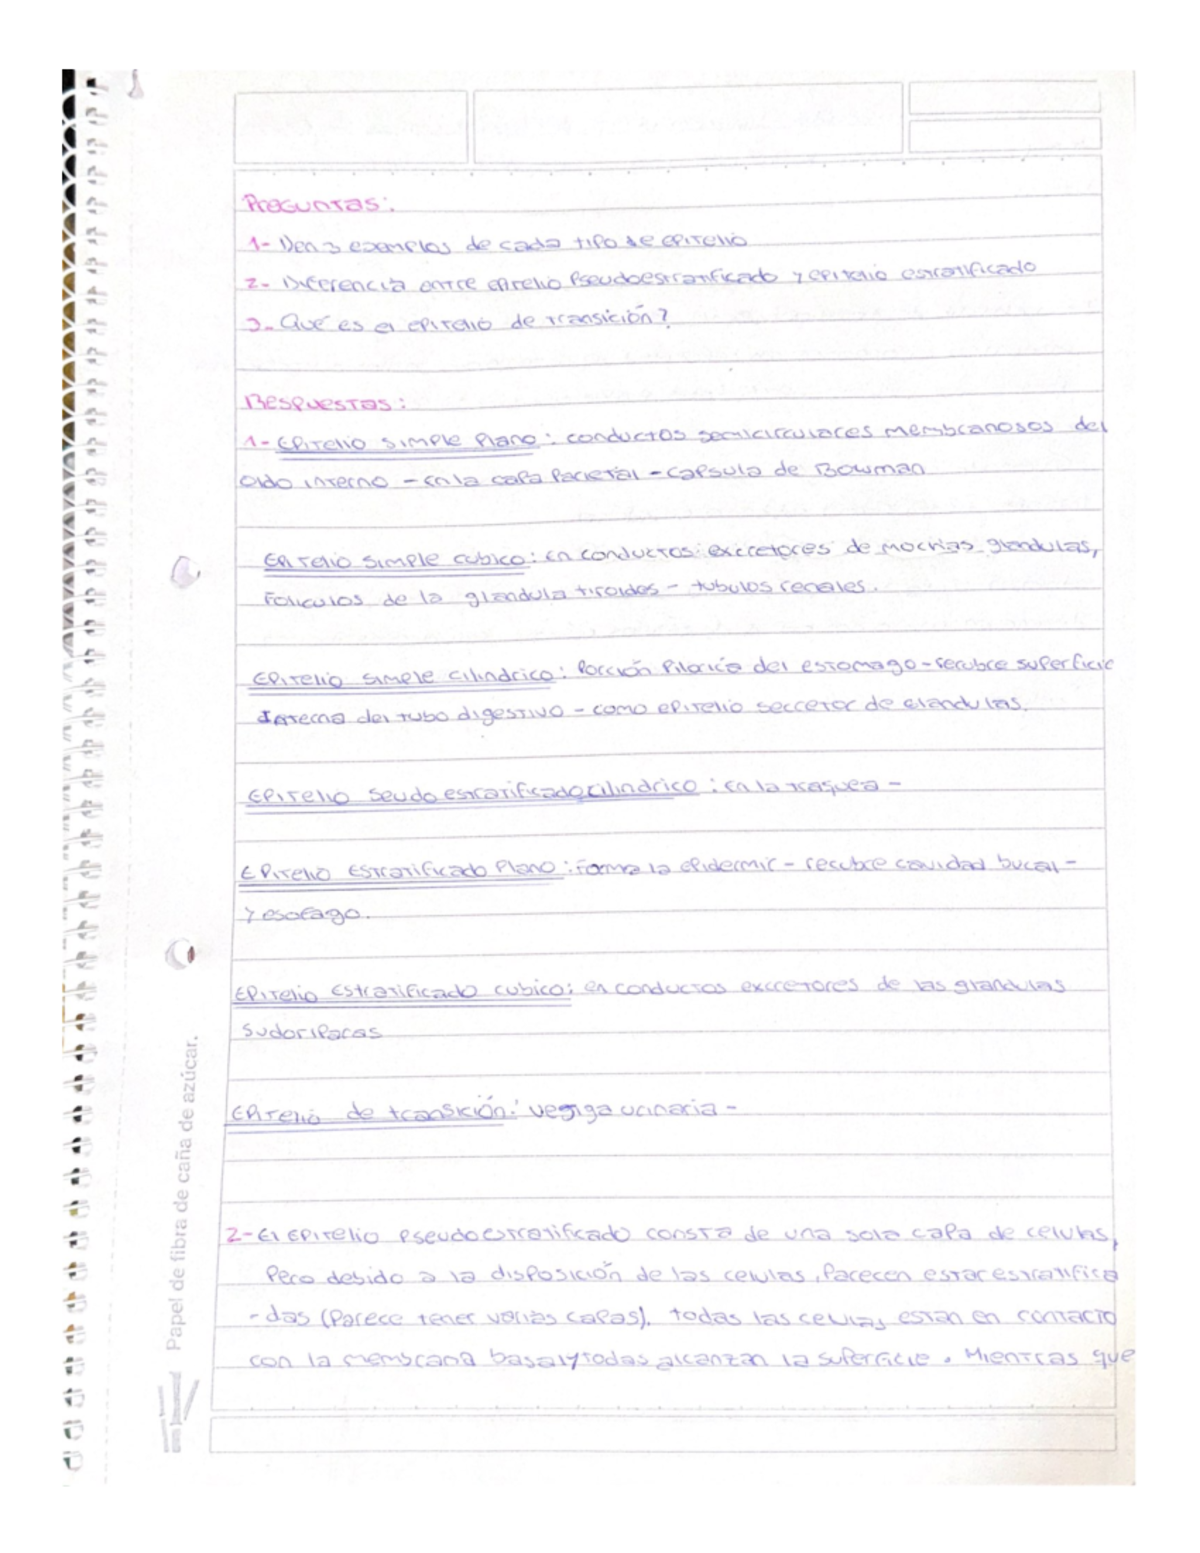 Preguntas:
1- Den 3 ejemplos de cada tipo de epitelio
2- Diferencia entre epitelio Pseudoestratificado y epitelio estratificado
3- Qué es el epitelio de transición?
Respuestas:
1- Epitelio simple plano: conductos semicirculares membranosos del
oido interno - en la capa parietal - capsula de Bowman
Epitelio simple cubico: en conductos excretores de muchas glandulas,
Foliculos de la glandula tiroides - tubulos renales.
Epitelio simple cilindrico: Porción Pilorica del estomago - recubre superficie
Interna del tubo digestivo - como epitelio secretor de glandulas.
Epitelio Seudoestratificado cilindrico: en la traquea -
Epitelio Estratificado Plano: Forma la epidermis - recubre cavidad bucal -
y esofago.
Epitelio Estratificado cubico: en conductos excretores de las glandulas
Sudoriparas
Epitelio de transición: vegiga urinaria -
2- El Epitelio pseudoestratificado consta de una sola capa de celulas,
Pero debido a la disposición de las celulas, parecen estar estratifica
- das (Parece tener varias capas). todas las celulas estan en contacto
con la membrana basal y todas alcanzan la superficie. Mientras que
Papel de fibra de caña de azúcar.